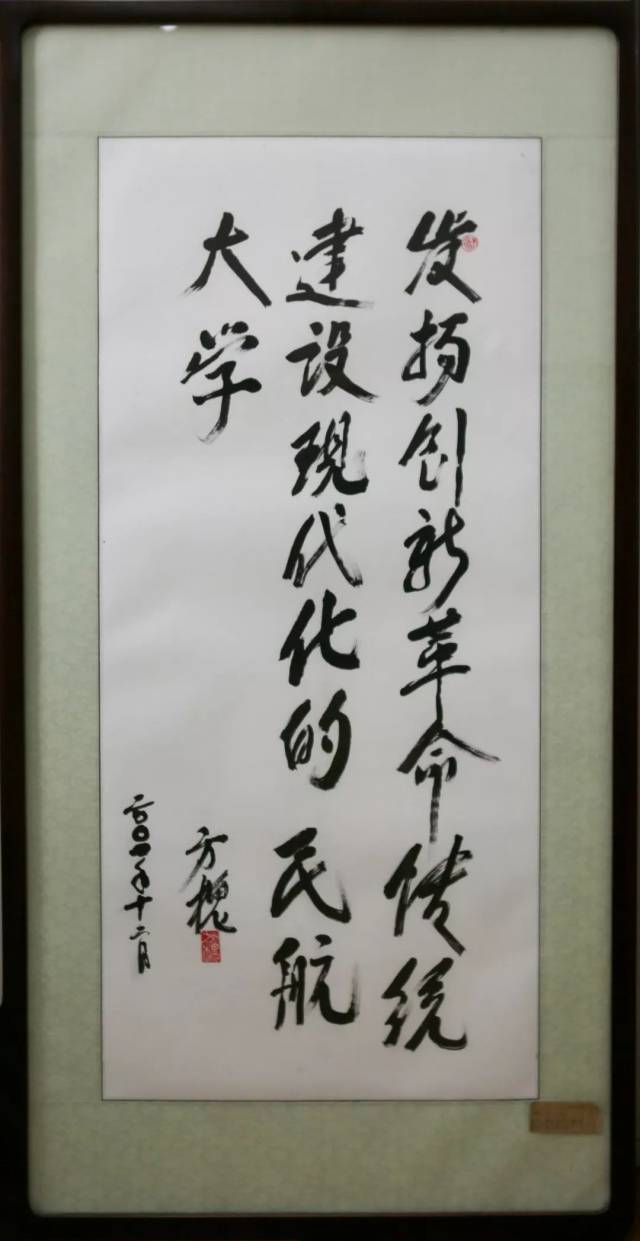 发扬创新革命传统
建设现代化的民航
大学
方槐
二〇〇一年十二月